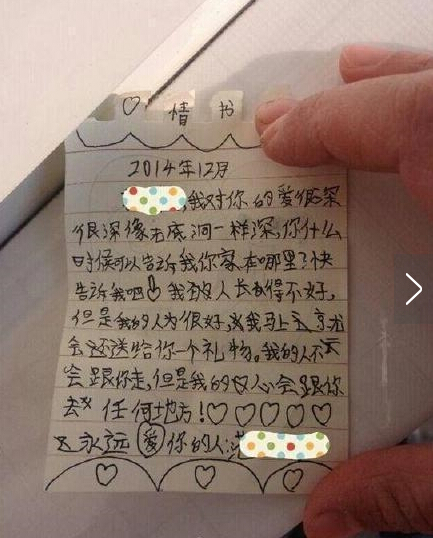 ♡ 情 书
2014年12月
,我对你的爱很深
很深像无底洞一样深,你什么
时候可以告诉我你家在哪里?快
告诉我吧! 我的人长的得不好,
但是我的人为很好,我马上
会还送给你一个礼物。我的人不
会跟你走,但是我的心会跟你
去 任何地方!♡♡♡♡♡
永远爱你的人:
♡ ♡ ♡